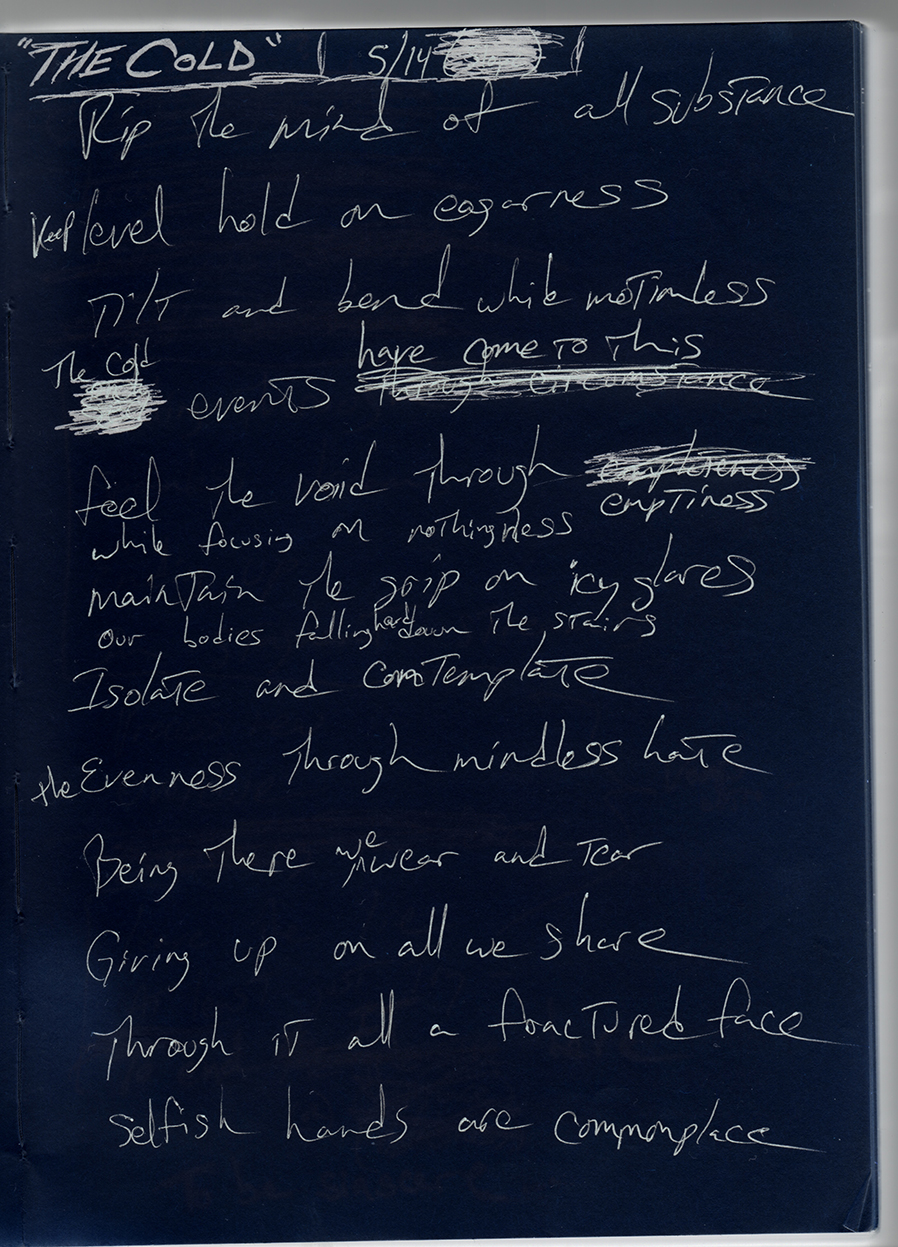 "THE COLD" 5/14
Rip the mind of all substance
Keep level hold on eagarness
Tilt and bend while motionless
The Cold events have come to this
through circumstance
feel the void through
emptiness
while focusing on nothingness
maintain the grip on icy glares
our bodies falling hard down the stairs
Isolate and contemplate
the Evenness through mindless hate
Being there we wear and tear
Giving up on all we share
Through it all a fractured face
selfish hands are commonplace